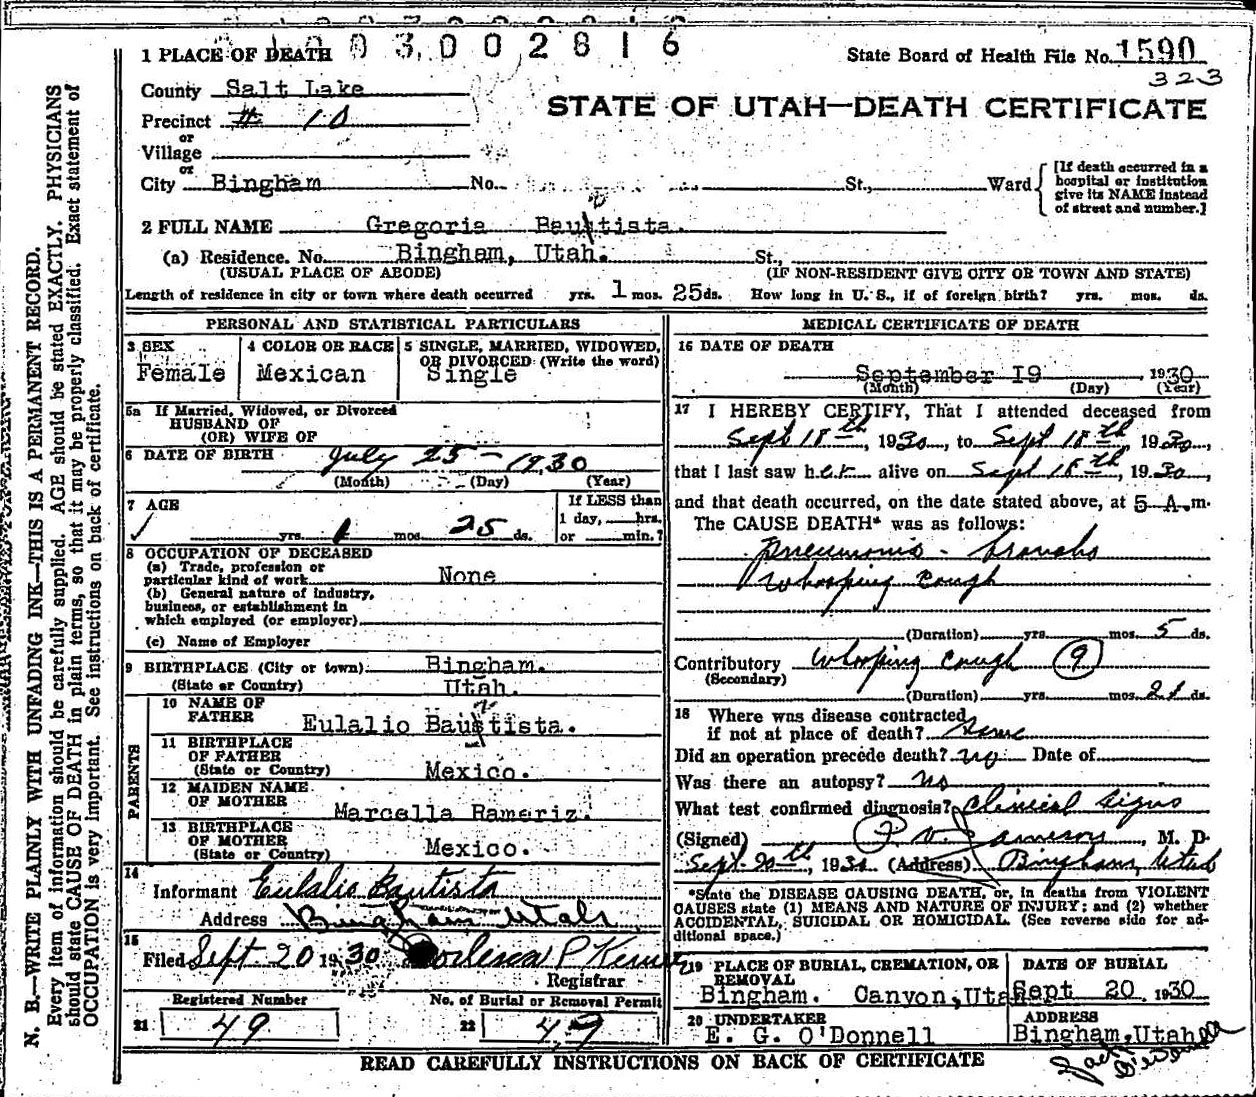 1003002816
1 PLACE OF DEATH
State Board of Health File No. 1590
323
County Salt Lake
STATE OF UTAH—DEATH CERTIFICATE
Precinct # 10
or
Village
or
City Bingham No. St., Ward
[If death occurred in a
hospital or institution
give its NAME instead
of street and number.]
2 FULL NAME Gregoria Bautista.
(a) Residence. No. Bingham, Utah. St.,
(USUAL PLACE OF ABODE) (IF NON-RESIDENT GIVE CITY OR TOWN AND STATE)
Length of residence in city or town where death occurred yrs. 1 mos. 25 ds. How long in U. S., if of foreign birth? yrs. mos. ds.
PERSONAL AND STATISTICAL PARTICULARS
3 SEX
Female
4 COLOR OR RACE
Mexican
5 SINGLE, MARRIED, WIDOWED,
OR DIVORCED (Write the word)
Single
5a If Married, Widowed, or Divorced
HUSBAND OF
(OR) WIFE OF
6 DATE OF BIRTH July 25 - 1930
(Month) (Day) (Year)
7 AGE
yrs. 1 mos. 25 ds.
If LESS than
1 day, hrs.
or min.?
8 OCCUPATION OF DECEASED
(a) Trade, profession or
particular kind of work None
(b) General nature of industry,
business, or establishment in
which employed (or employer)
(c) Name of Employer
9 BIRTHPLACE (City or town) Bingham.
(State or Country) Utah.
PARENTS
10 NAME OF
FATHER Eulalio Bautista.
11 BIRTHPLACE
OF FATHER
(State or Country) Mexico.
12 MAIDEN NAME
OF MOTHER Marcella Rameriz.
13 BIRTHPLACE
OF MOTHER
(State or Country) Mexico.
14
Informant Eulalio Bautista
Address Bingham Utah
15
Filed Sept 20 1930
Registrar
Registered Number
21 49
No. of Burial or Removal Permit
22 49
MEDICAL CERTIFICATE OF DEATH
16 DATE OF DEATH
September I9 1930
(Month) (Day) (Year)
17 I HEREBY CERTIFY, That I attended deceased from
Sept 18th, 1930, to Sept 18th, 1930,
that I last saw her alive on Sept 18th, 1930,
and that death occurred, on the date stated above, at 5 A.m.
The CAUSE DEATH* was as follows:
Pneumonia - broncho
Whooping Cough
(Duration) yrs. mos. 5 ds.
Contributory Whooping Cough 9
(Secondary)
(Duration) yrs. mos. 21 ds.
18 Where was disease contracted
if not at place of death? Home
Did an operation precede death? no Date of
Was there an autopsy? No
What test confirmed diagnosis? Clinical Signs
(Signed) , M. D.
Sept-20-th, 1930 (Address) Bingham, Utah
*State the DISEASE CAUSING DEATH, or, in deaths from VIOLENT
CAUSES state (1) MEANS AND NATURE OF INJURY; and (2) whether
ACCIDENTAL, SUICIDAL OR HOMICIDAL. (See reverse side for ad-
ditional space.)
19 PLACE OF BURIAL, CREMATION, OR
REMOVAL
Bingham. Canyon, Utah
DATE OF BURIAL
Sept 20 1930
20 UNDERTAKER
E. G. O'Donnell
ADDRESS
Bingham, Utah
READ CAREFULLY INSTRUCTIONS ON BACK OF CERTIFICATE
N. B.—WRITE PLAINLY WITH UNFADING INK—THIS IS A PERMANENT RECORD.
Every item of information should be carefully supplied. AGE should be stated EXACTLY. PHYSICIANS
should state CAUSE OF DEATH in plain terms, so that it may be properly classified. Exact statement of
OCCUPATION is very important. See instructions on back of certificate.